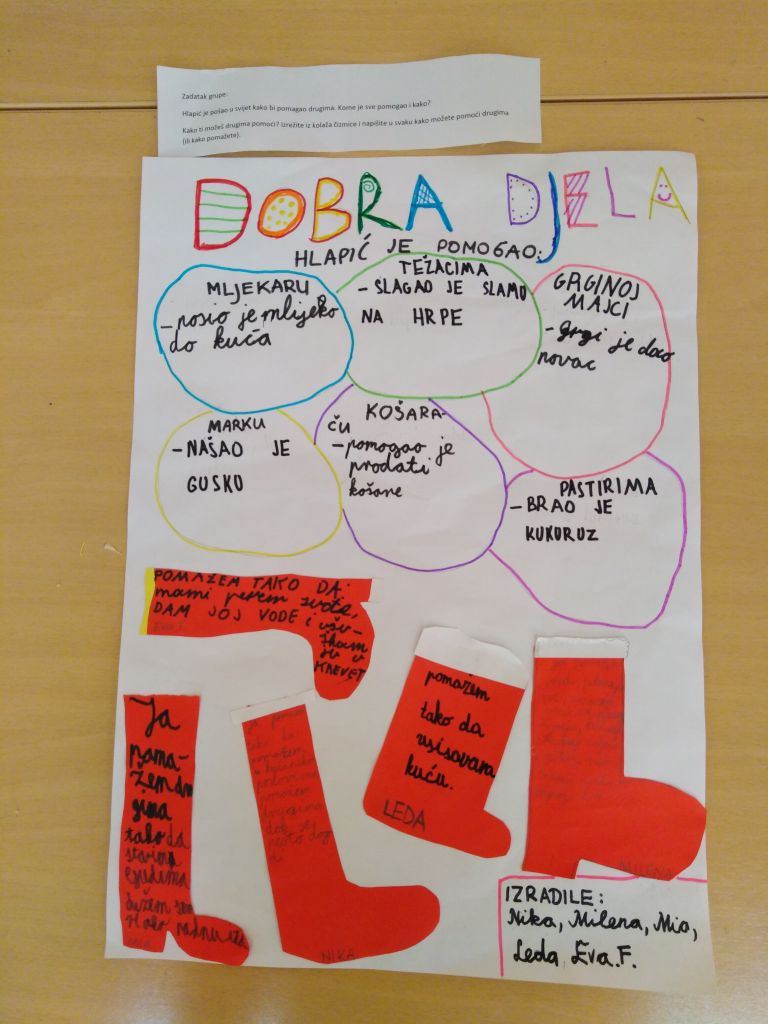 Zadatak grupe:
Hlapić je pošao u svijet kako bi pomagao drugima. Kome je sve pomogao i kako?
Kako ti možeš drugima pomoći? Izrežite iz kolaža čizmice i napišite u svaku kako možete pomoći drugima
(ili kako pomažete).
DOBRA DJELA
HLAPIĆ JE POMOGAO:
MLJEKARU
- nosio je mlijeko
do kuća
TEŽACIMA
- SLAGAO JE SLAMU
NA HRPE
GRGINOJ
MAJCI
- grgi je dao
novac
MARKU
- NAŠAO JE
GUSKU
KOŠARA-
ČU
- pomogao je
prodati
košare
PASTIRIMA
- BRAO JE
KUKURUZ
POMAŽEM TAKO DA
mami perem
DAM JOJ VODE I
KREVET
pomažem
tako da
usisavam
kuću.
LEDA
Ja
poma-
žem dru
gima
tako da
starim
ljudima
MIA
NIKA
MILENA
IZRADILE:
Nika, Milena, Mia,
Leda, Eva.F.